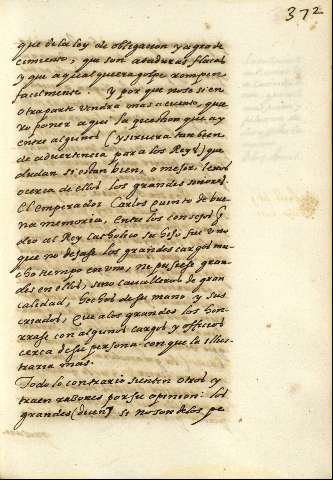 372
que de la ley de obligacion y agrade
cimiento; que son ataduras flacas
y que a qualquiera golpe rompen
facilmente. y por que no se si en
otra parte vendra mas a cuento, quie
ro poner a qui la question que ay
entre algunos (y servira tambien
de advertencia para los Reyes) que
dudan si estan bien, o mejor lexos
o cerca de ellos los grandes señores.
El emperador Carlos quinto de bue
na memoria, entre los consejos q
dio al Rey Catholico su hijo fue uno
que no dejase los grandes cargos mu
cho tiempo en uno, ni pusiese gran
des en ellos, sino cavalleros de gran
calidad, hechos de su mano y sus
criados, Que a los grandes los hon
rrase con algunos cargos y officios
cerca de su persona con que los illus
traria mas.
Todo lo contrario sienten otros y
traen razones por su opinion: los
grandes (dicen) si no son de los pe